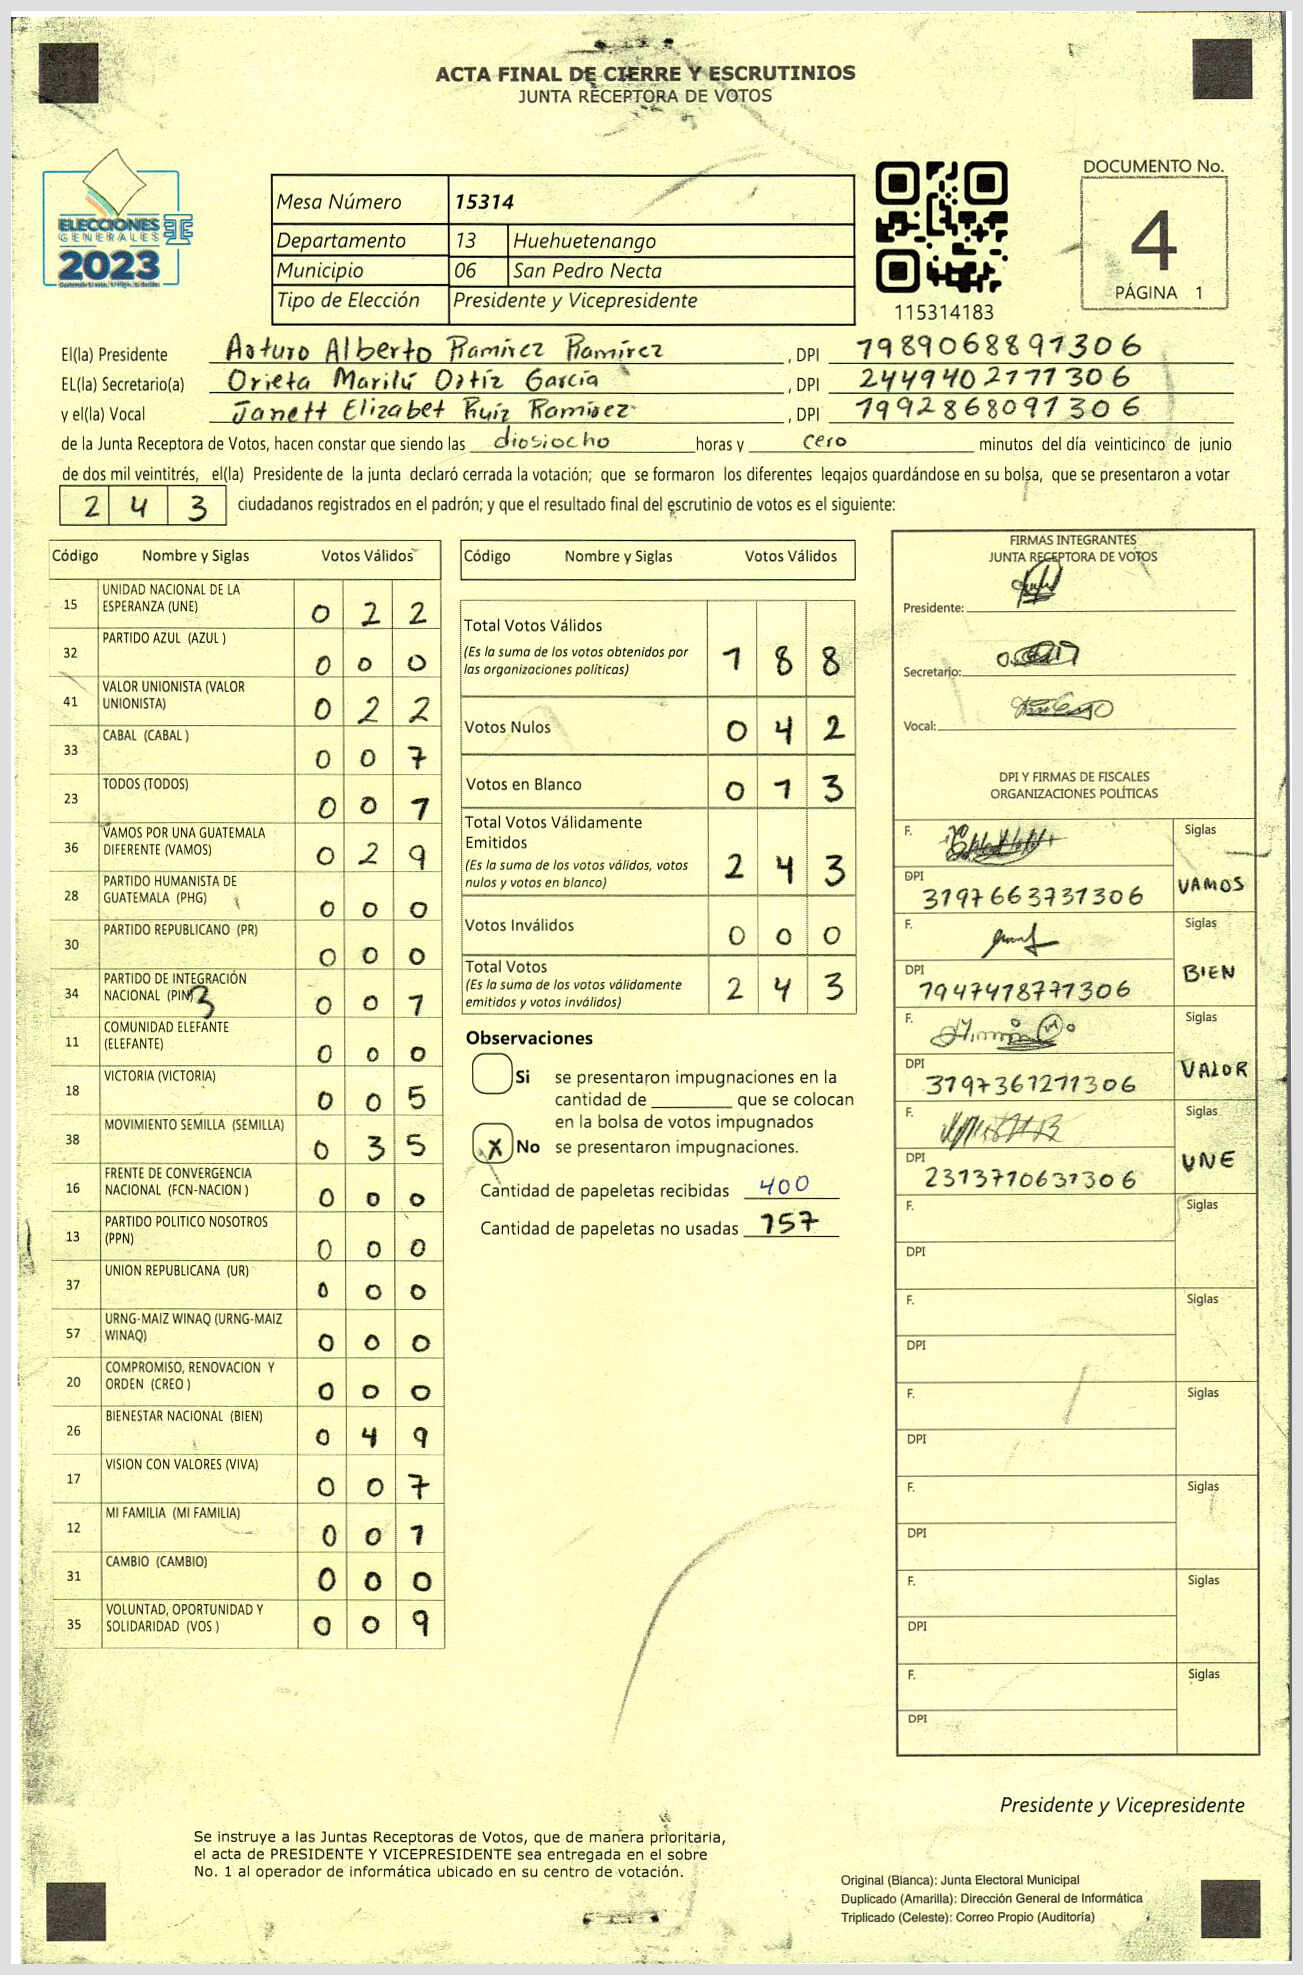 ACTA FINAL DE CIERRE Y ESCRUTINIOS
JUNTA RECEPTORA DE VOTOS
ELECCIONES
GENERALES
2023
Mesa Número 15314
Departamento 13 Huehuetenango
Municipio 06 San Pedro Necta
Tipo de Elección Presidente y Vicepresidente
115314183
DOCUMENTO No.
4
PÁGINA 1
El(la) Presidente Arturo Alberto Ramírez Ramírez , DPI 1989068891306
EL(la) Secretario(a) Orieta Marilú Ortíz García , DPI
y el(la) Vocal Janett Elizabet Ruiz Ramírez , DPI 1992868091306
de la Junta Receptora de Votos, hacen constar que siendo las diosiocho horas y cero minutos del día veinticinco de junio
de dos mil veintitrés, el(la) Presidente de la junta declaró cerrada la votación; que se formaron los diferentes legajos guardándose en su bolsa, que se presentaron a votar
2 4 3 ciudadanos registrados en el padrón; y que el resultado final del escrutinio de votos es el siguiente:
Código Nombre y Siglas Votos Válidos
15 UNIDAD NACIONAL DE LA
ESPERANZA (UNE) 0 2 2
32 PARTIDO AZUL (AZUL ) 0 0 0
41 VALOR UNIONISTA (VALOR
UNIONISTA) 0 2 2
33 CABAL (CABAL ) 0 0 7
23 TODOS (TODOS) 0 0 1
36 VAMOS POR UNA GUATEMALA
DIFERENTE (VAMOS) 0 2 9
28 PARTIDO HUMANISTA DE
GUATEMALA (PHG) 0 0 0
30 PARTIDO REPUBLICANO (PR) 0 0 0
34 PARTIDO DE INTEGRACIÓN
NACIONAL (PIN) 3 0 0 1
11 COMUNIDAD ELEFANTE
(ELEFANTE) 0 0 0
18 VICTORIA (VICTORIA) 0 0 5
38 MOVIMIENTO SEMILLA (SEMILLA) 0 3 5
16 FRENTE DE CONVERGENCIA
NACIONAL (FCN-NACION ) 0 0 0
13 PARTIDO POLITICO NOSOTROS
(PPN) 0 0 0
37 UNION REPUBLICANA (UR) 0 0 0
57 URNG-MAIZ WINAQ (URNG-MAIZ
WINAQ) 0 0 0
20 COMPROMISO, RENOVACION Y
ORDEN (CREO ) 0 0 0
26 BIENESTAR NACIONAL (BIEN) 0 4 9
17 VISION CON VALORES (VIVA) 0 0 7
12 MI FAMILIA (MI FAMILIA) 0 0 1
31 CAMBIO (CAMBIO) 0 0 0
35 VOLUNTAD, OPORTUNIDAD Y
SOLIDARIDAD (VOS ) 0 0 9
Código Nombre y Siglas Votos Válidos
Total Votos Válidos
(Es la suma de los votos obtenidos por
las organizaciones políticas) 1 8 8
Votos Nulos 0 4 2
Votos en Blanco 0 1 3
Total Votos Válidamente
Emitidos
(Es la suma de los votos válidos, votos
nulos y votos en blanco) 2 4 3
Votos Inválidos 0 0 0
Total Votos
(Es la suma de los votos válidamente
emitidos y votos inválidos) 2 4 3
Observaciones
Si se presentaron impugnaciones en la
cantidad de ________ que se colocan
en la bolsa de votos impugnados
X No se presentaron impugnaciones.
Cantidad de papeletas recibidas 400
Cantidad de papeletas no usadas 157
FIRMAS INTEGRANTES
JUNTA RECEPTORA DE VOTOS
Presidente:
Secretario:
Vocal:
DPI Y FIRMAS DE FISCALES
ORGANIZACIONES POLÍTICAS
F. Siglas
DPI 3197663731306 VAMOS
F. Siglas
DPI BIEN
F. Siglas
DPI VALOR
F. Siglas
DPI UNE
F. Siglas
DPI
F. Siglas
DPI
F. Siglas
DPI
F. Siglas
DPI
F. Siglas
DPI
F. Siglas
DPI
Presidente y Vicepresidente
Se instruye a las Juntas Receptoras de Votos, que de manera prioritaria,
el acta de PRESIDENTE Y VICEPRESIDENTE sea entregada en el sobre
No. 1 al operador de informática ubicado en su centro de votación.
Original (Blanca): Junta Electoral Municipal
Duplicado (Amarilla): Dirección General de Informática
Triplicado (Celeste): Correo Propio (Auditoría)